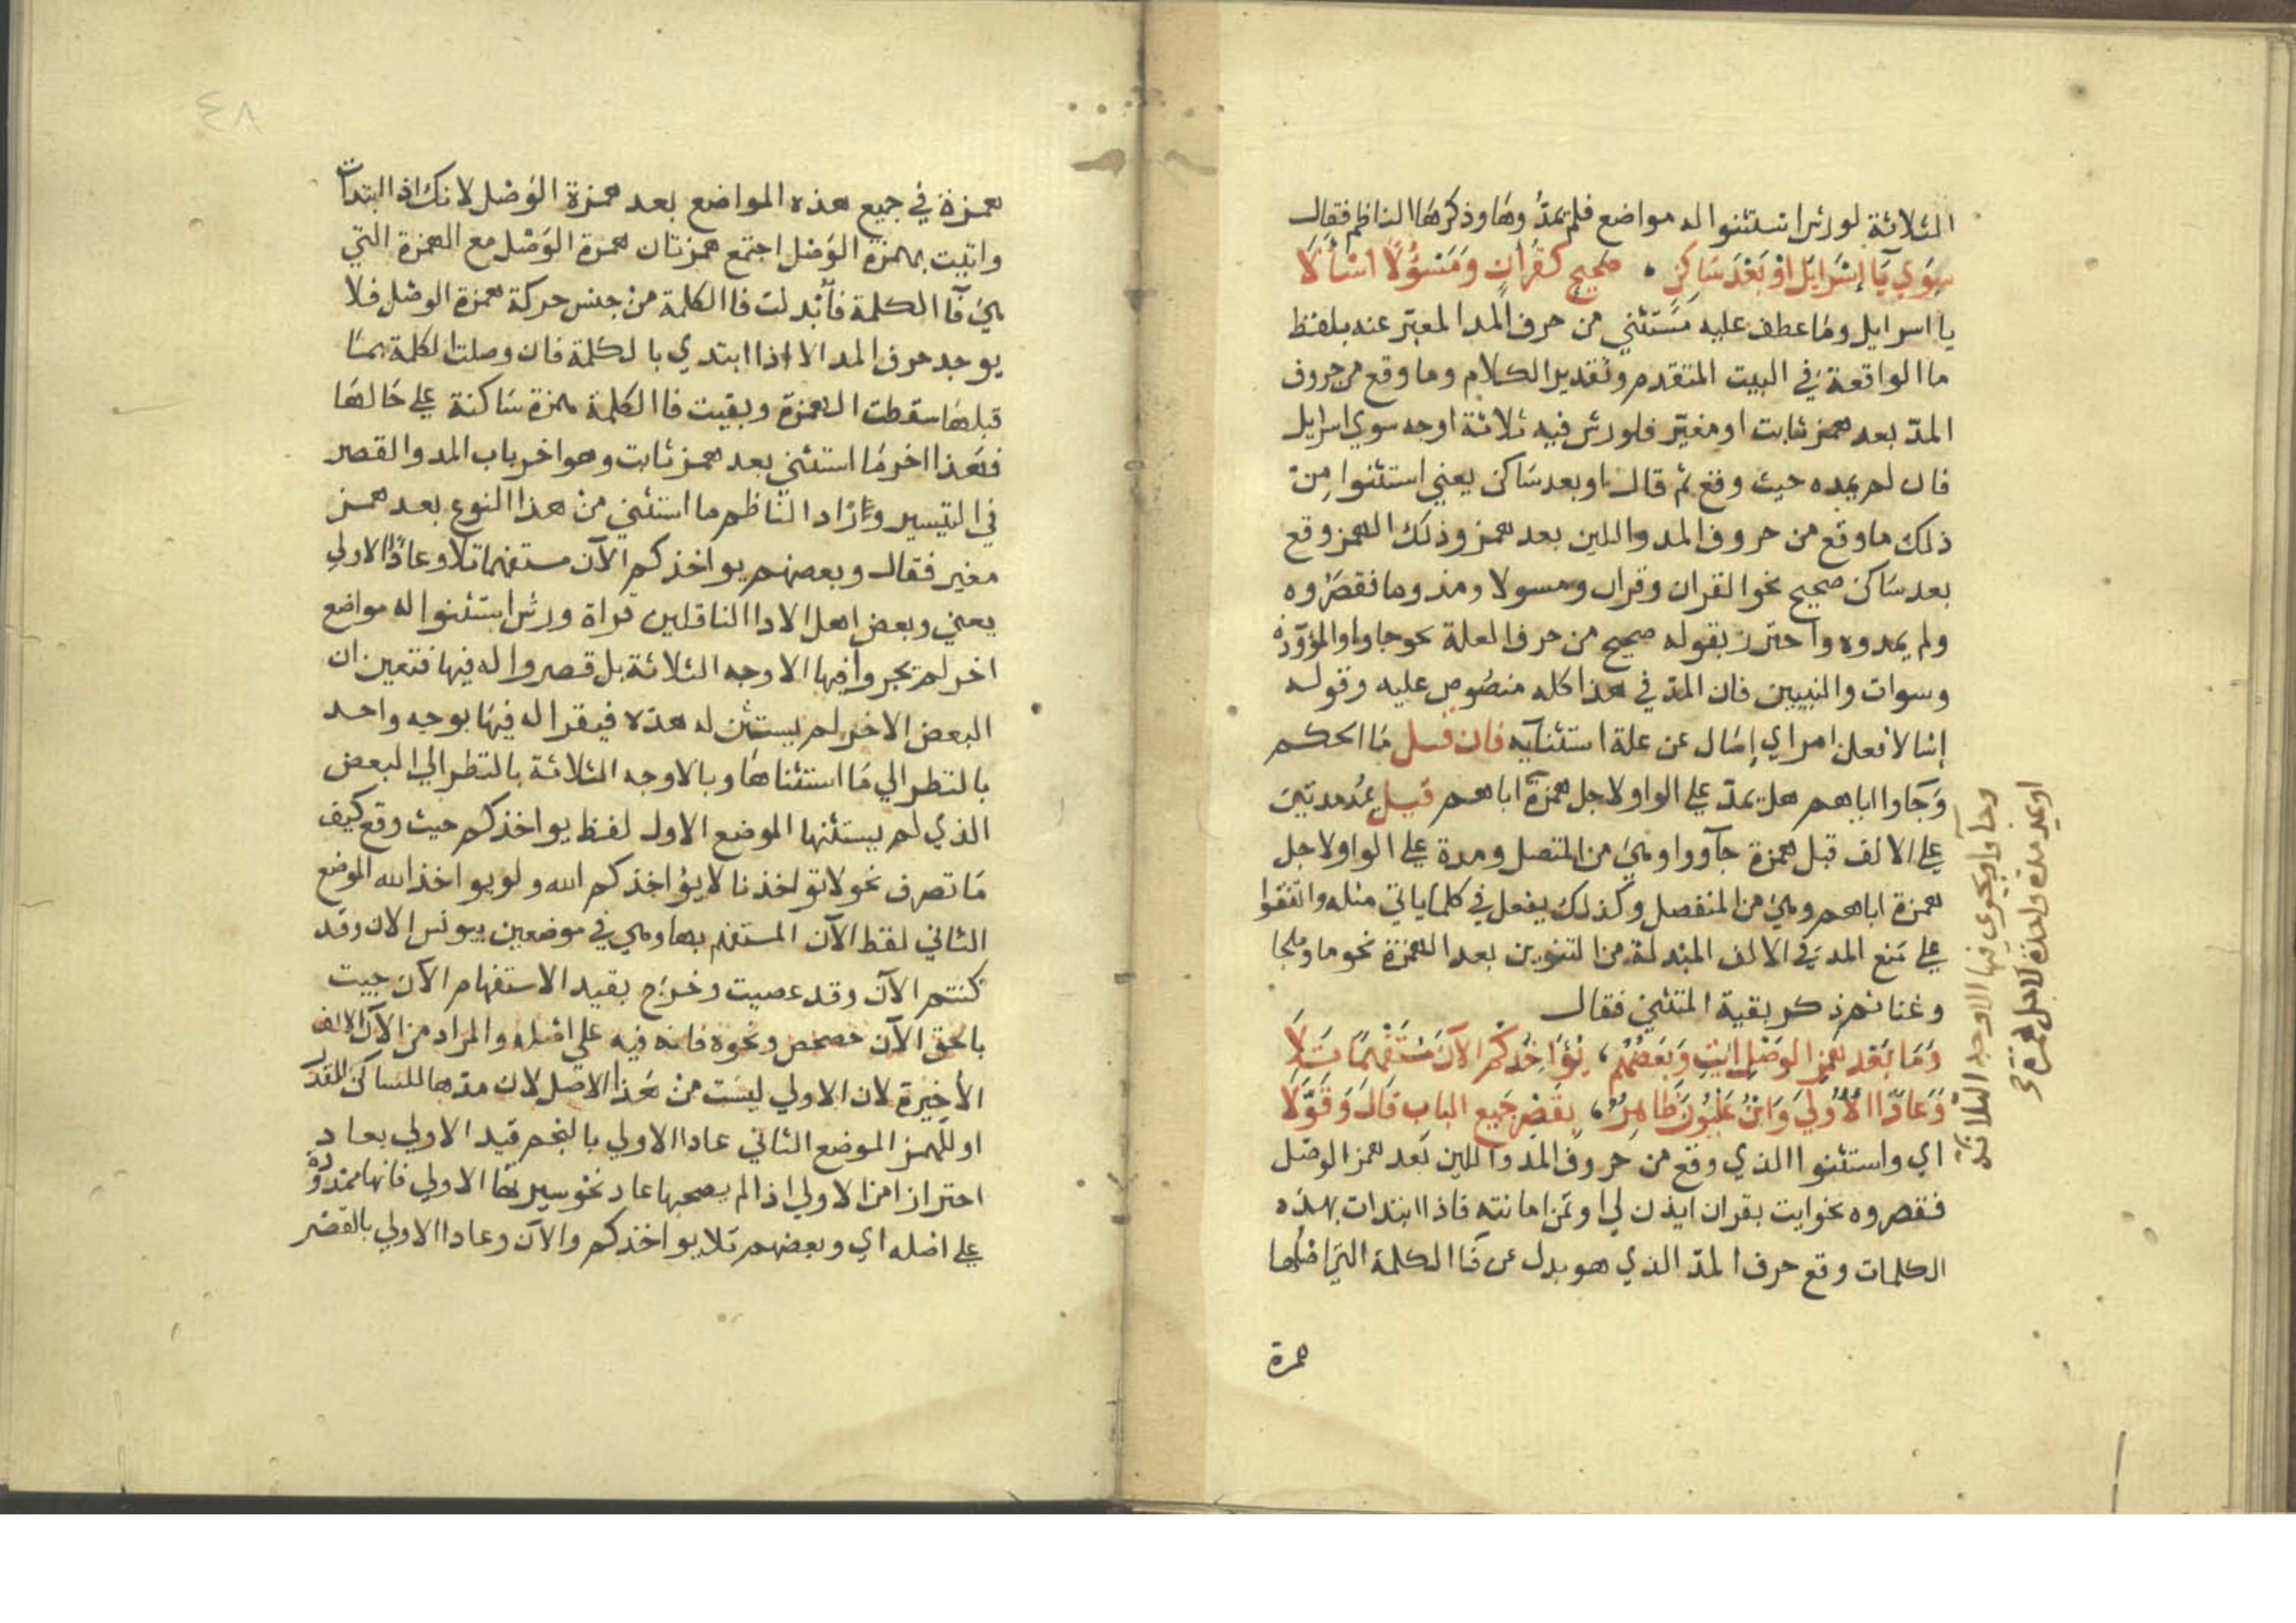 الثلاثة لورش استثنوا له مواضع فلم يمدوها وذكرها الناظم فقال
سِوَي يَآ إِسْرَايلَ اوْ بَعْدَ سَاكِنٍ ٠ صَحِيحٍ كَقُرْآنٍ وَمَسْؤُلًا اسْأَلَا
يا اسرايل وما عطف عليه مستثني من حرف المد المعبّر عنه بلفظ
ما الواقعة في البيت المتقدم وتقدير الكلام وما وقع من حروف
المدّ بعد همز ثابت او مغيّر فلورش فيه ثلاثة اوجه سوي اسرايل
فان لم يمده حيث وقع ثم قال او بعد ساكن يعني استثنوا مِنْ
ذلك ما وقع من حروف المد واللين بعد همز وذلك الهمز وقع
بعد ساكن صحيح نحو القران وقران ومسولا ومذوما فقصروه
ولم يمدوه واحترز بقوله صحيح من حرف العلة نحو جاوا والموؤدة
وسوات والنبيين فان المدّ في هذا كله منصُوص عليه وقوله
إسالا فعل امر اي إسَال عن علة استثنايه فان قيل مَا الحكم
وَجَاوا اباهم هل يمدّ علي الواو لاجل همزة اباهم قيل يمُد مدتين
علي الالف قبل همزة جآووا وهيَ من المتصل ومدة علي الواو لاجل
همزة اباهم وهيَ من المنفصل وكذلك يفعل في كلما ياتي مثله واتفقوا
علي مَنع المد في الالف المبْدلة من التنوين بعد الهمزة نحو ما وملجا
وغثا ثم ذكر بقية المتثني فقال
وَمَا بَعْد هَمزِ الوَصْلِ ايْتِ وَبَعضُهُمْ ، يُؤَاخِذُكُمْ الآنَ مُسْتَفْهِمًا تَلَا
وَعَادًا الْأُولَي وَابْنُ غَلْبُونَ طَاهِرٌ ، بِقَصْرِ جَمِيعِ البابِ قَالَ وَقَوَّلَا
اي واستثنوا الذي وقع من حروف المد واللين بَعد همز الوصْل
فقصروه نحو ايت بقران ايذن لي اوتمن امانته فاذا ابتدات بهذه
الكلمات وقع حرف المدّ الذي هو بدل عن فا الكلمة التي اصلها
همزة
وجاوا ويجوي فيها الاوجه الثلاثة
او يمد مدة واحدة لاجل همزة
٤٨
همزة في جميع هذه المواضع بعد همزة الوَصْل لانك اذا ابتدات
واتيت بهمزة الوَصْل اجتمع همزتان همزة الوَصْل مع الهمزة التي
هيَ فآ الكلمة فأبْدلت فا الكلمة منْ جنس حركة همزة الوصْل فلا
يوجد حرف المد الا اذا ابتدي بالكلمة فان وصلت الكلمة بمَا
قبلهَا سقطت الهمزة وبقيت فا الكلمة همزة سَاكنة علي حَالهَا
فهَذا اخر مَا استثني بعد همز ثابت وهو اخر باب المد والقصر
في التيسير وزاد الناظم ما استثني منْ هذا النوع بعد همز
مغير فقال وبعضهم يواخذكم الآن مستفهما تلا وعادًا الاولي
يعني وبعض اهل الادا الناقلين قراة ورش استثنوا له مواضع
اخر لم يجروا فيها الاوجه الثلاثة بل قصروا له فيها فتعين ان
البعض الاخر لم يستثن له هذه فيقرا له فيهَا بوجه واحد
بالنظر الي مَا استثناهَا وبالاوجه الثلاثة بالنظر الي البعض
الذي لم يستثنها الموضع الاول لفظ يواخذكم حيث وقع كيف
مَا تصرف نحو لا تواخذنا لا يؤاخذكم الله ولو يواخذ الله الموضع
الثاني لفظ الآن المستفهم بها وهي في موضعين بيونس الان وقد
كنتم الآن وقد عصيت وخرَج بقيد الاستفهام الآن جيت
بالحق الآن حصحص ونحوه فانه فيه علي اصله والمراد من الآن الالف
الأخيرة لان الاولي ليسَت منْ هَذا الاصْل لان مدّها للساكن المقدر
او للهمز الموضع الثاني عادا الاولي بالنجم قيد الاولي بعاد
احترازا من الاولي اذا لم يصحبها عاد نحو سيرتها الاولي فانها ممدودة
علي اصله اي وبعضهم تلا يواخذكم والآن وعادا الاولي بالقصْر